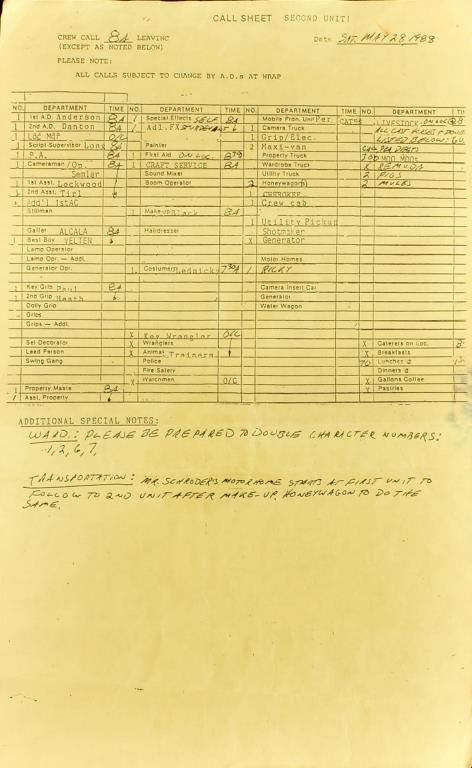 CALL SHEET SECOND UNIT!
CREW CALL 8A LEAVING
(EXCEPT AS NOTED BELOW)
Date SAT. MAY 28, 1988
PLEASE NOTE:
ALL CALLS SUBJECT TO CHANGE BY A.D.s AT WRAP
NO. DEPARTMENT TIME NO. DEPARTMENT TIME NO. DEPARTMENT TIME NO. DEPARTMENT
1 1st A.D. Anderson 8A 1 Special Effects SELF 8A Mobile Prdn. Unit Per. CATS LIVESTOCK ON LOC @ 8
1 2nd A.D. Danton 8A 1 Adl.FX 1 Camera Truck
1 Loc Mgr O/C 1 Grip/Elec. LISTED BELOW:
1 Script Supervisor Long 8A Painter 2 Maxi-van
1 P.A. 8A First Aid ON LOC Property Truck
1 Cameraman/Op. 8A 1 CRAFT SERVICE 8A Wardrobe Truck X REMUDA
Semler Sound Mixer Utility Truck 2 PIGS
1 1st Asst. Lockwood Boom Operator 2 Honeywagon 2 MULES
1 2nd Asst. Tirl 1 CHEROKEE
Add'l 1stAC 1 Crew cab
Stillman 1 Make-up 8A
1 Utility Pickup
Gaffer ALCALA 8A Hairdresser Shotmaker
1 Best Boy VELTEN X Generator
Lamp Operator
Lamp Opr. — Addl. Motor Homes
Generator Opr. 1 Costumer Lednicky 730A 1 RICKY
1 Key Grip Paul 8A Camera Insert Car
1 2nd Grip Heath Generator
Dolly Grip Water Wagon
Grips
Grips — Addl.
X Key Wrangler O/C
Set Decorator X Wranglers X Caterers on Loc. 8
Lead Person X Animal Trainers X Breakfasts
Swing Gang Police 70 Lunches @
Fire Safety Dinners @
X Watchmen O/C X Gallons Coffee
1 Property Master 8A X Pastries
1 Asst. Property
ADDITIONAL SPECIAL NOTES:
WARD.: PLEASE BE PREPARED TO DOUBLE CHARACTER NUMBERS:
1, 2, 6, 7,
TRANSPORTATION: MR. SCHRODER'S MOTORHOME STARTS AT FIRST UNIT TO
FOLLOW TO 2ND UNIT AFTER MAKE-UP. HONEYWAGON TO DO THE
SAME.